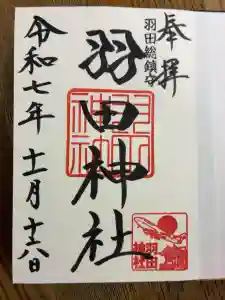 奉拝
羽田総鎮守
羽田神社
令和七年十一月十六日
羽田神社
羽田神社